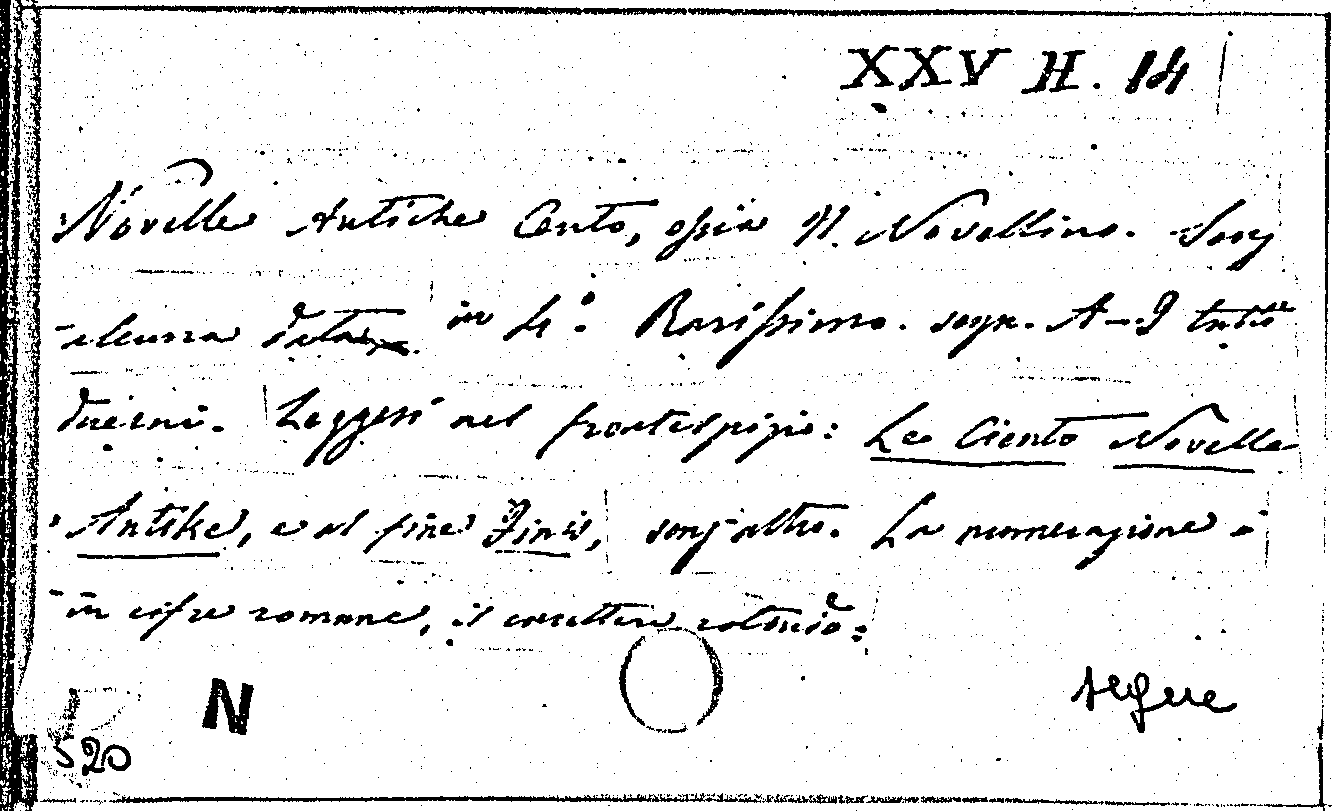 XXV H. 14
Novelle Antiche Cento, ossia Il Novellino. Senz
alcuna data in 4.° Rarissimo. segn. A-I tutti
duerni. Leggesi nel frontespizio: Le Ciento Novelle
Antike, e al fine Finis, senz'altro. La numerazione è
in cifre romane, il carattere rotondo:
segue
N
520